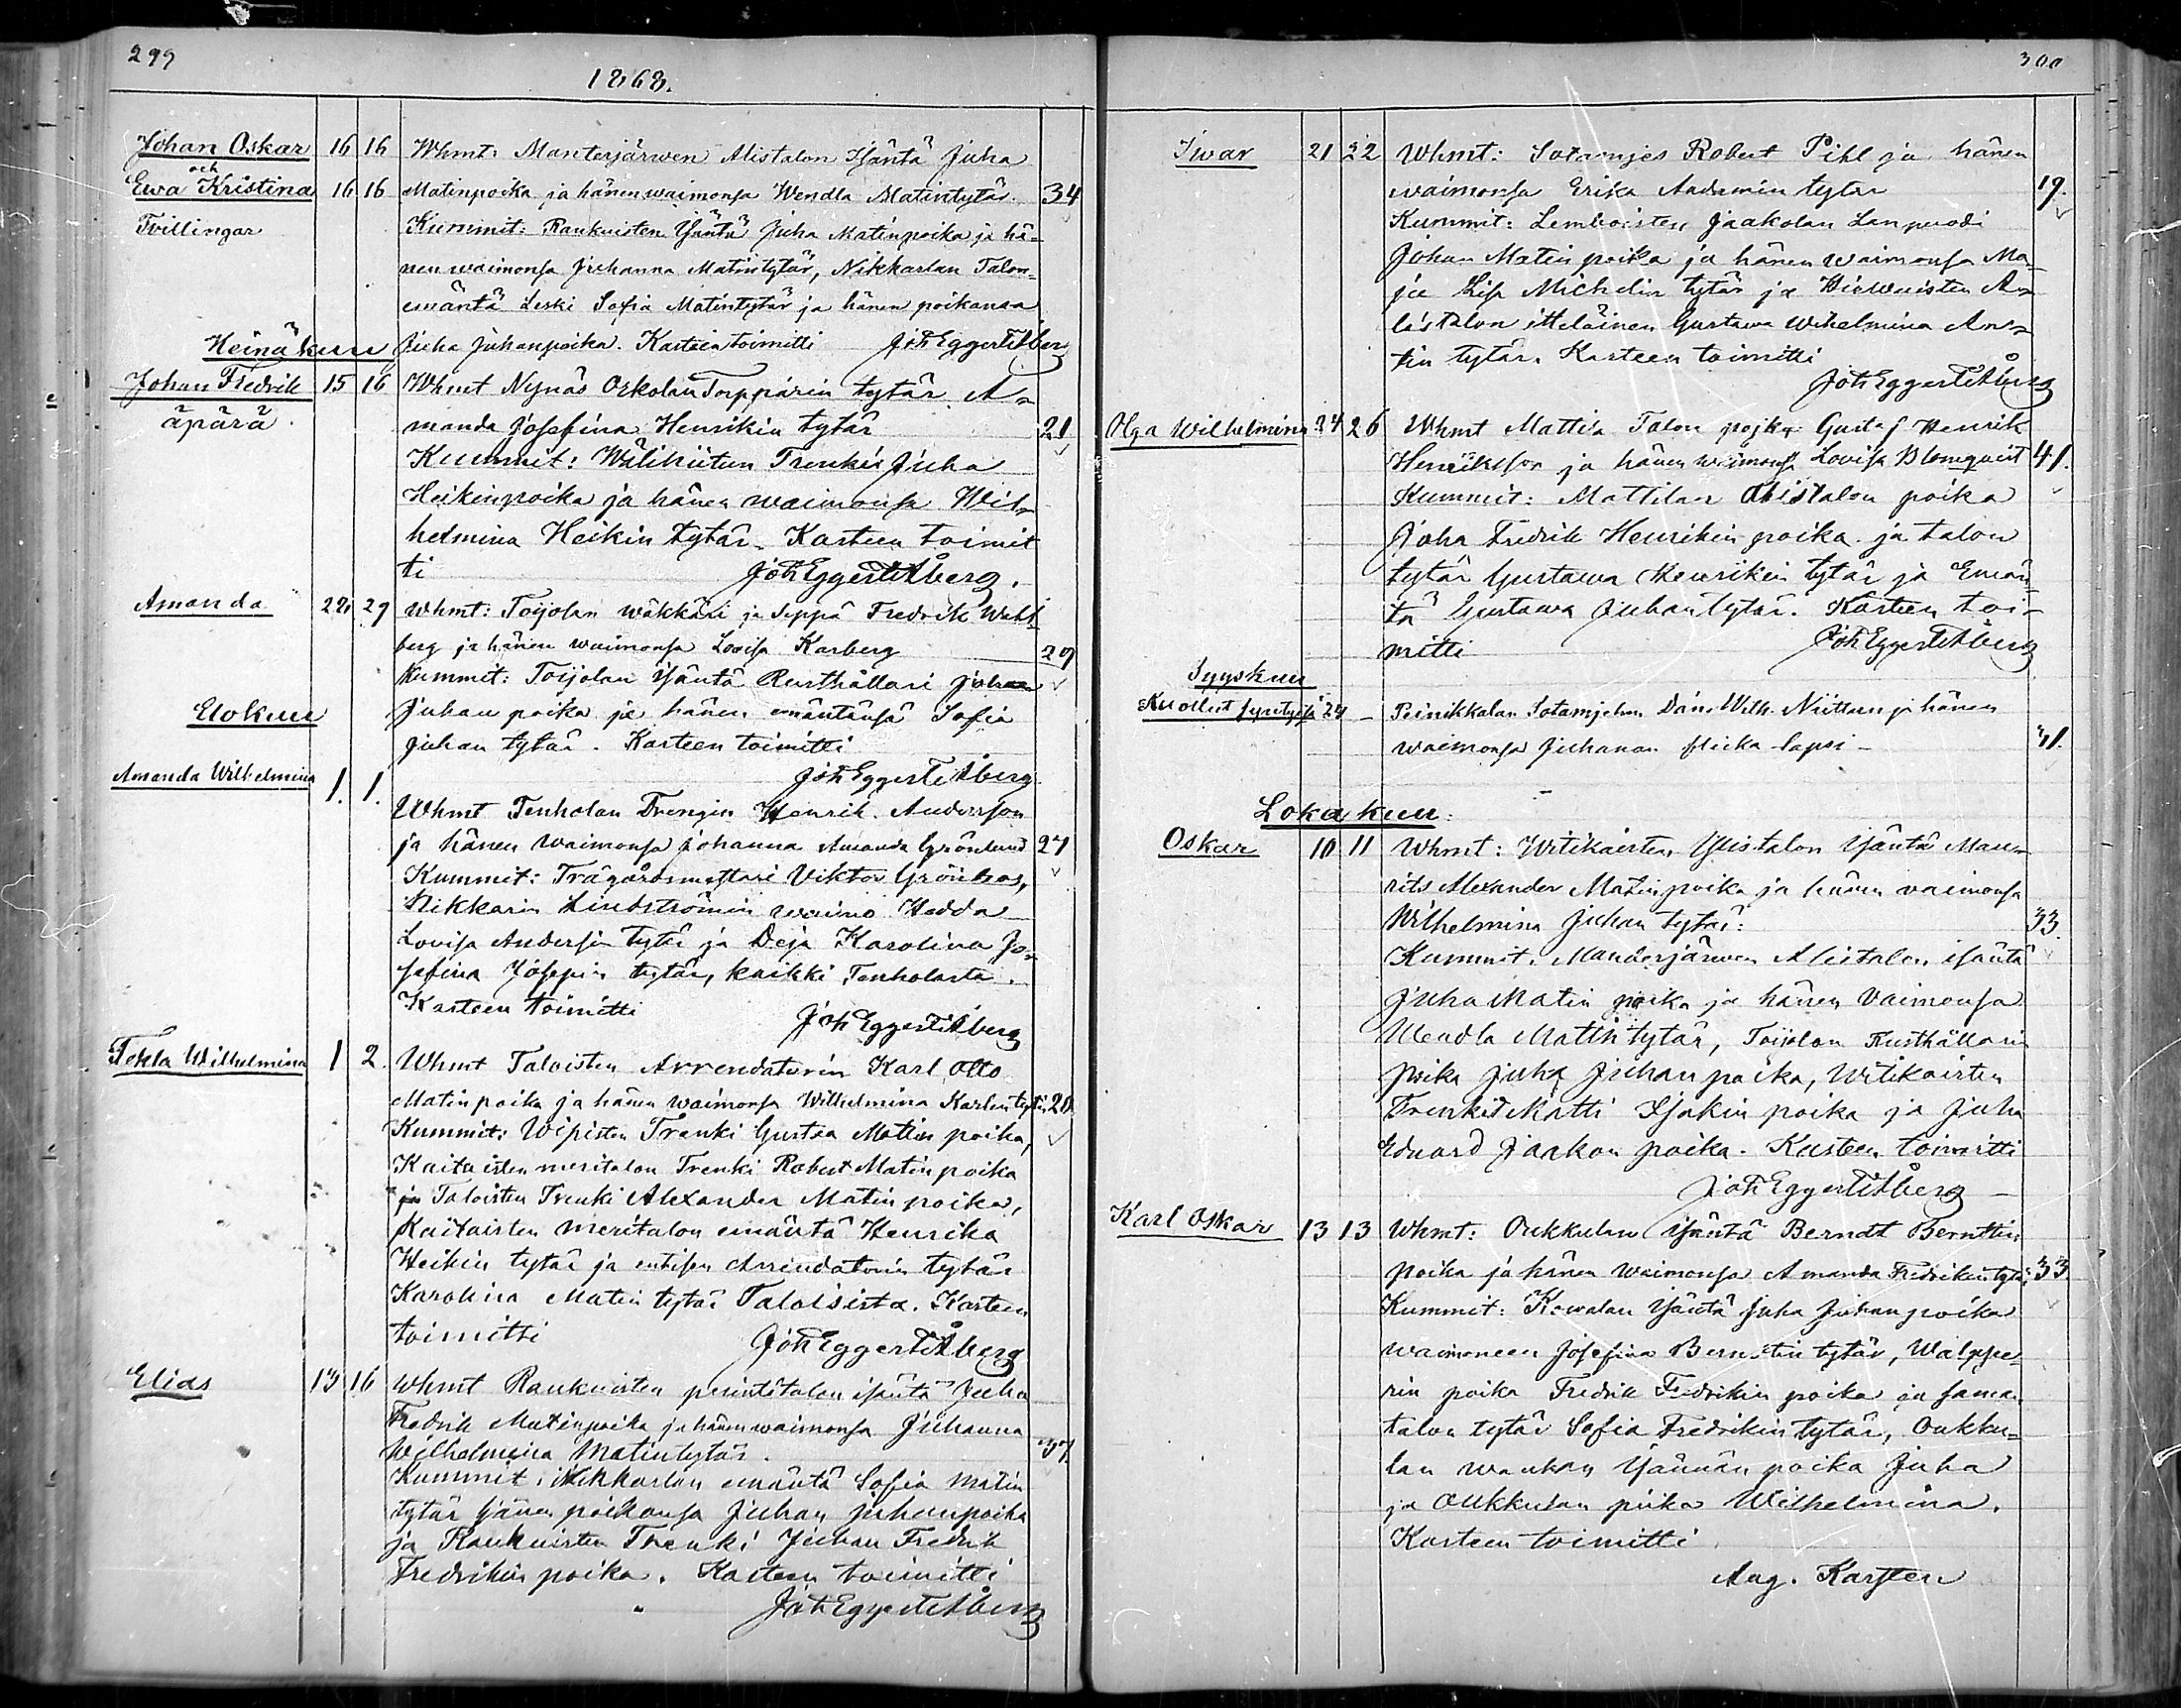 299
1868.
Johan Oskar 16 16 Whmt. Manterjärwen Alistalon Isäntä Juha
och
Ewa Kristina 16 16 Matinpoika ja hänen waimonsa Wendla Matintytär. 34
Tvillingar Kummit: Raukuisten Isäntä Juha Matinpoika ja hä-
nen waimonsa Juhanna Matintytär, Nikkarlan Talon-
emäntä Leski Sofia Matintytär ja hänen poikansa
Heinäkuu Juha Juhanpoika. Kasteen toimitti Joh Eggert Åberg
Johan Fredrik 15 16 Whmt Nynäs Torpparin tytär A-
äpärä manda Josefina Henrikin tytär 21
Kummit: Trenki Juha
Heikinpoika ja hänen waimonsa Wil-
helmina Heikin tytär. Kasteen toimit
ti Joh Eggert Åberg.
Amanda 28 29 Whmt: Toijolan wäkkäri ja Seppä Fredrik Wahl-
berg ja hänen waimonsa Lovisa Karberg 29
Kummit: Toijolan Isäntä Rusthållari Johan
Elokuu Juhan poika ja hänen emäntänsä Sofia
Juhan tytär. Kasteen toimitti
Joh Eggert Åberg
Amanda Wilhelmina 1. 1.
Whmt Tenholan Drengin Henrik Andersson
ja hänen waimonsa Johanna Amanda Grönlund 27
Kummit: Trägårdsmestari Viktor Grönroos,
Nikkarin Lindströmin waimo Hedda
Lovisa Andersin tytär ja Deja Karolina Jo-
sefina Joseppin tytär, kaikki Tenholasta.
Kasteen toimitti Joh Eggert Åberg
Tekla Wilhelmina 1 2. Whmt Taloisten Arrendatorin Karl Otto
Matin poika ja hänen waimonsa Wilhelmina Karlin tytär 28
Kummit: Wipisten Trenki Gustaa Matin poika,
Kaitaisten meritalon Trenki Robert Matin poika
ja Taloisten Trenki Alexander Matin poika,
Kaitaisten meritalon emäntä Henrika
Heikin tytär ja entisen Arrendatorin tytär
Karolina Matin tytär Taloisista. Kasteen
toimitti Joh Eggert Åberg
Elias 13 16 Whmt Raukuisten perintötalon isäntä Juha
Fredrik Matinpoika ja hänen waimonsa Juhanna
Wilhelmina Matintytär. 37.
Kummit: Nikkarlan emäntä Sofia Matin
tytär hänen poikansa Juhan Juhanpoika
ja Raukuisten Trenki Juhan Fredrik
Fredrikin poika. Kasteen toimitti
Joh Eggert Åberg
300
Iwar 21 22 Whmt: Sotamjes Robert Pihl ja hänen
waimonsa Erika Andersin tytär 19.
Kummit: Lemboisten Jaakolan Lanpuodi
Johan Matin poika ja hänen waimonsa Ma-
ja Lisa Michelin tytär ja A-
listalon itteläinen Gustawa Wilhelmina An-
tin tytär. Kasteen toimitti
Joh Eggert Åberg
Olga Wilhelmina 24 26 Whmt Mattila Talon pojka Gustaf Henrik
Henriksson ja hänen waimonsa Lovisa Blomquist 41.
Kummit: Mattilan Alistalon poika
Juha Fredrik Henrikin poika ja talon
tytär Gustawa Henrikin tytär ja Emän-
tä Gustawa Juhan tytär. Kasteen toi-
mitti Joh Eggert Åberg
Syyskuu
Kuollut syntynyt 24 - Peinikkalan Sotamjehen Dan. Wilh. Niittun ja hänen
waimonsa Juhanan flicka lapsi - 31.
Lokakuu.
Oskar 10 11 Whmt: Witikaisten Ylistalon Isäntä Mau-
rits Alexander Matin poika ja hänen vaimonsa
Wilhelmina Juhan tytär. 33.
Kummit: Manderjärwen Alistalon isäntä
Juha Matin poika ja hänen Vaimonsa
Wendla Mattintytär, Toijolan Rusthållarin
poika Juha Juhan poika, Witikaisten
Trenkit Matti Isakin poika ja Juha
Eduard Jaakon poika. Kasteen toimitti
Joh Eggert Åberg
Karl Oskar 13 13 Whmt: Oukkulan Isäntä Berndt Berndtin
poika ja hänen waimonsa Amanda Fredrikin tytär 33
Kummit: Kowalan Isäntä Juha Juhan poika
waimoneen Josefina Berndtin tytär, Walppe-
rin poika Fredrik Fredrikin poika ja saman
talon tytär Sofia Fredrikin tytär, Oukku-
lan wanhan Isännän poika Juha
ja Oukkulan piika Wilhelmina.
Kasteen toimitti
Aug. Karsten